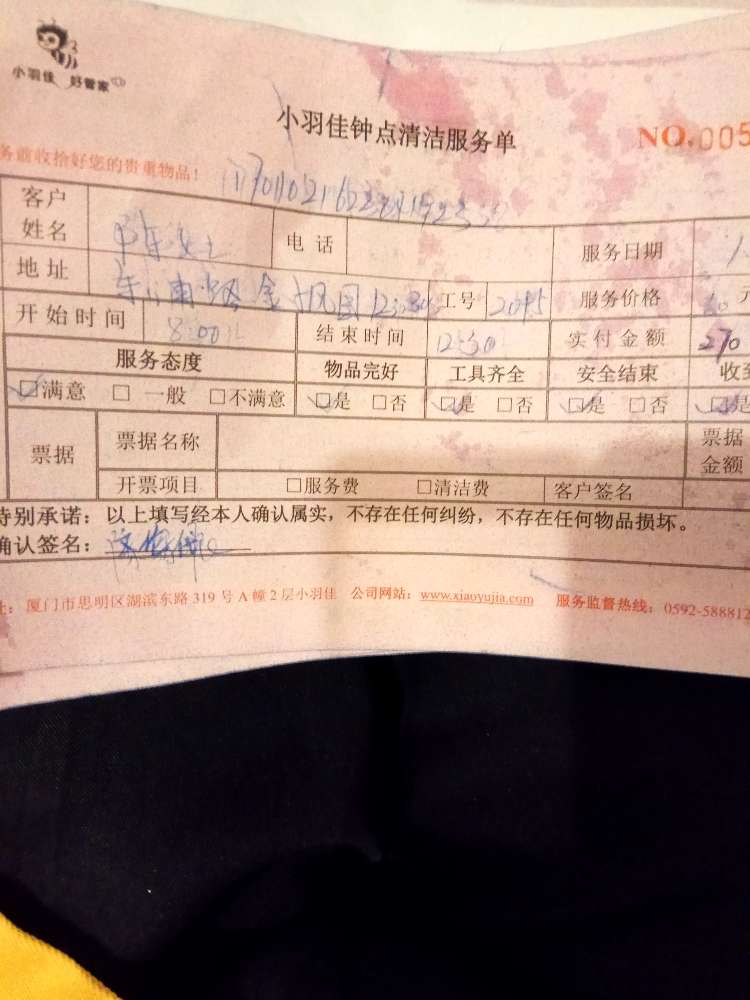 小羽佳 好管家
小羽佳钟点清洁服务单
NO.005
务前收拾好您的贵重物品!
客户姓名 电话 服务日期
地址 工号 2095 服务价格 元
开始时间 8:00 结束时间 12:30 实付金额 270
服务态度 物品完好 工具齐全 安全结束 收到
☑满意 □一般 □不满意 ☑是 □否 ☑是 □否 ☑是 □否 ☑是
票据 票据名称 票据金额
开票项目 □服务费 □清洁费 客户签名
特别承诺:以上填写经本人确认属实,不存在任何纠纷,不存在任何物品损坏。
确认签名:
址:厦门市思明区湖滨东路 319 号 A 幢 2 层小羽佳 公司网站:www.xiaoyujia.com 服务监督热线:0592-588812